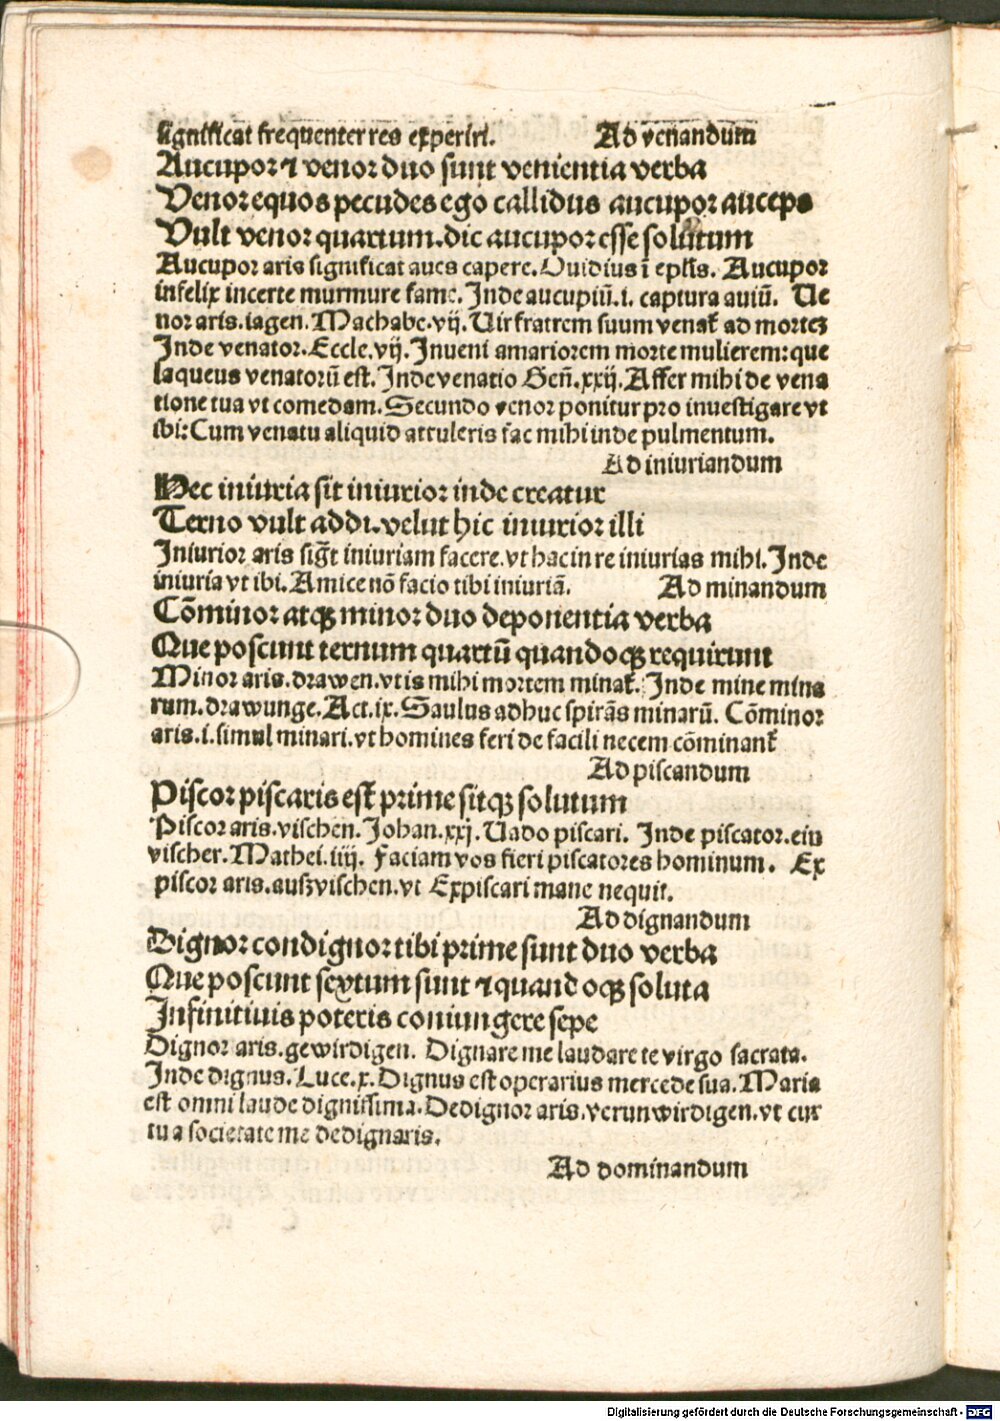 significat frequenter res experiri. Ad venandum
Aucupor ⁊ venor duo sunt venientia verba
Venor equos pecudes ego callidus aucupor auceps
Vult venor quartum. dic aucupor esse solutum
Aucupor aris significat aues capere. Ouidius ī epłis. Aucupor
infelix incerte murmure fame. Inde aucupiū .i. captura auiū. Ue
nor aris. iagen. Machabe. vij. Uir fratrem suum venat᷑ ad mortez
Inde venator. Eccle. vij. Inueni amariorem morte mulierem: que
laqueus venatorū est. Inde venatio Geñ. xxij. Affer mihi de vena
tione tua vt comedam. Secundo venor ponitur pro inuestigare vt
ibi: Cum venatu aliquid attuleris fac mihi inde pulmentum.
Ad iniuriandum
Hec iniuria sit iniurior inde creatur
Terno vult addi. velut hic iniurior illi
Iniurior aris sigt̄ iniuriam facere. vt hac in re iniurias mihi. Inde
iniuria vt ibi. Amice nō facio tibi iniuriā. Ad minandum
Cōminor atqꝫ minor duo deponentia verba
Que poscunt ternum quartū quandoqꝫ requirunt
Minor aris. drawen. vt is mihi mortem minat᷑. Inde mine mina
rum. drawunge. Act. ix. Saulus adhuc spirās minarū. Cōminor
aris .i. simul minari. vt homines feri de facili necem cōminant᷑
Ad piscandum
Piscor piscaris est prime sitqꝫ solutum
Piscor aris. vischen. Johan. xxj. Uado piscari. Inde piscator. ein
vischer. Mathei. iiij. Faciam vos fieri piscatores hominum. Ex
piscor aris. außvischen. vt Expiscari mane nequit.
Ad dignandum
Dignor condignor tibi prime sunt duo verba
Que poscunt sextum sunt ⁊ quandoqꝫ soluta
Infinitiuis poteris coniungere sepe
Dignor aris. gewirdigen. Dignare me laudare te virgo sacrata.
Inde dignus. Luce. x. Dignus est operarius mercede sua. Maria
est omni laude dignissima. Dedignor aris. verunwirdigen. vt cur
tua societate me dedignaris.
Ad dominandum
Digitalisierung gefördert durch die Deutsche Forschungsgemeinschaft - DFG